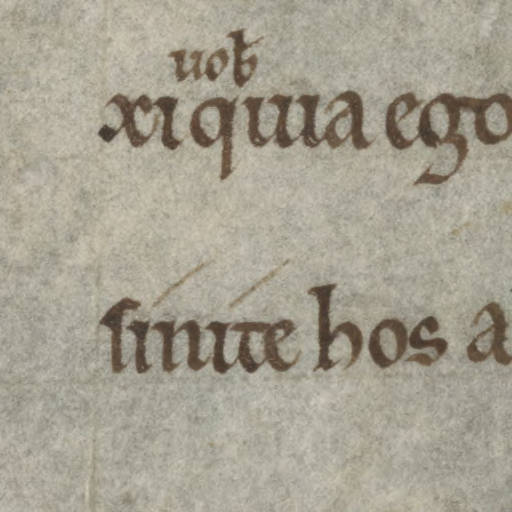 uob̄
xi quia ego
sinite hos a